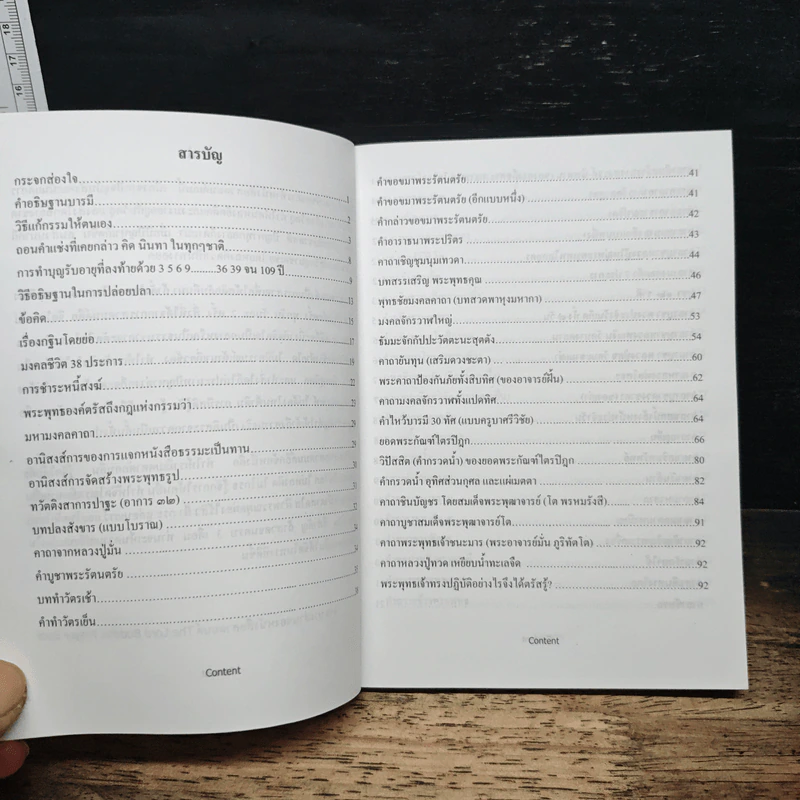 18
17
16
สารบัญ
กระจกส่องใจ
คำอธิษฐานบารมี 1
วิธีแก้กรรมให้ตนเอง 2
ถอนคำแช่งที่เคยกล่าว คิด นินทา ในทุกๆชาติ 3
การทำบุญรับอายุที่ลงท้ายด้วย 3 5 6 9.........36 39 จน 109 ปี 8
วิธีอธิษฐานในการปล่อยปลา 9
ข้อคิด 13
เรื่องกฐินโดยย่อ 15
มงคลชีวิต 38 ประการ 17
การชำระหนี้สงฆ์ 18
พระพุทธองค์ตรัสถึงกฎแห่งกรรมว่า 21
มหามงคลคาถา 23
อานิสงส์การของการแจกหนังสือธรรมะเป็นทาน 29
อานิสงส์การจัดสร้างพระพุทธรูป 29
ทวัตติงสาการปาฐะ (อาการ ๓๒) 30
บทปลงสังขาร (แบบโบราณ) 31
คาถาจากหลวงปู่มั่น 32
คำบูชาพระรัตนตรัย 34
บททำวัตรเช้า 34
คำทำวัตรเย็น 35
38
Content
คำขอขมาพระรัตนตรัย 41
คำขอขมาพระรัตนตรัย (อีกแบบหนึ่ง) 41
คำกล่าวขอขมาพระรัตนตรัย 42
คำอาราธนาพระปริตร 43
คาถาเชิญชุมนุมเทวดา 44
บทสรรเสริญ พระพุทธคุณ 46
พุทธชัยมงคลคาถา (บทสวดพาหุงมหากา) 47
มงคลจักรวาฬใหญ่ 53
ธัมมะจักกัปปะวัตตะนะสุตตัง 54
คาถายันทุน (เสริมดวงชะตา) 60
พระคาถาป้องกันภัยทั้งสิบทิศ (ของอาจารย์ฝั้น) 62
คาถามงคลจักรวาฬทั้งแปดทิศ 64
คำไหว้บารมี 30 ทัศ (แบบครูบาศรีวิชัย) 64
ยอดพระกัณฑ์ไตรปิฎก 66
วิปัสสิต (คำกรวดน้ำ) ของยอดพระกัณฑ์ไตรปิฎก 80
คำกรวดน้ำ อุทิศส่วนกุศล และแผ่เมตตา 82
คาถาชินบัญชร โดยสมเด็จพระพุฒาจารย์ (โต พรหมรังสี) 84
คาถาบูชาสมเด็จพระพุฒาจารย์โต 91
คาถาพระพุทธเจ้าชนะมาร (พระอาจารย์มั่น ภูริทัตโต) 92
คาถาหลวงปู่ทวด เหยียบน้ำทะเลจืด 92
พระพุทธเจ้าทรงปฏิบัติอย่างไรจึงได้ตรัสรู้? 92
Content